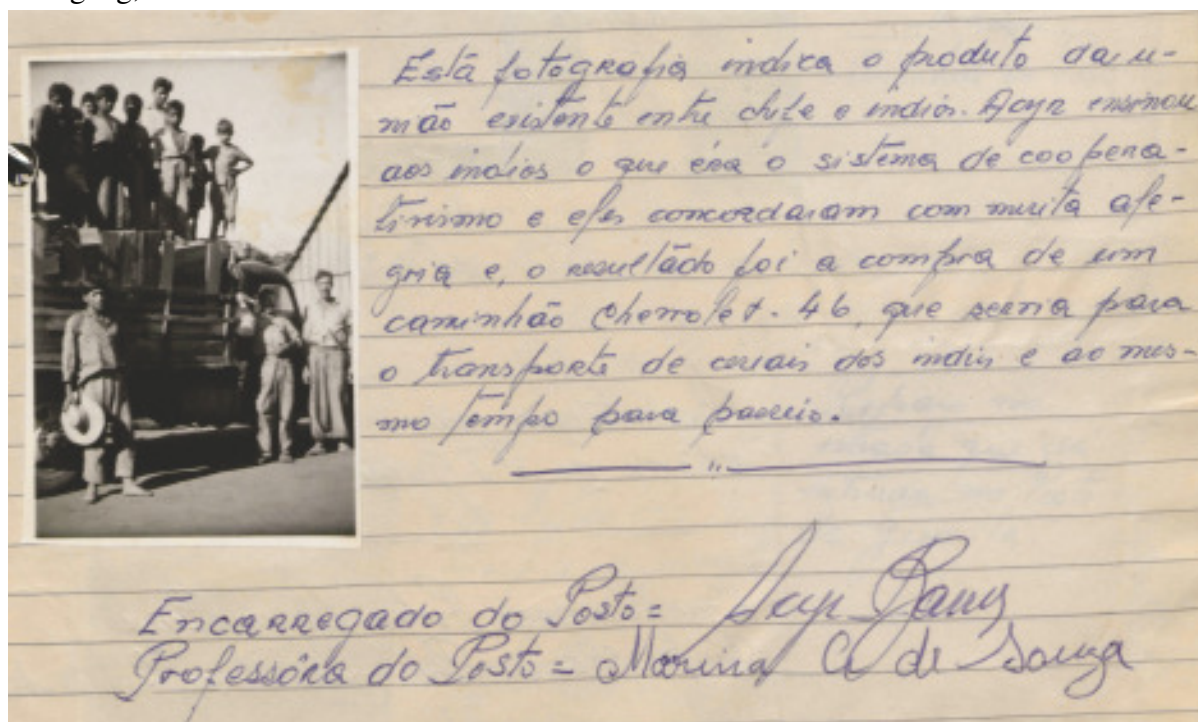 Está fotografia indica o produto da u-
nião existente entre chefe e indios. Acyr ensinou
aos indios o que éra o sistema de coopera-
tivismo e eles concordaram com muita ale-
gria e, o resultado foi a compra de um
caminhão Chevrolet. 46, que servia para
o transporte de cereais dos indios e ao mes-
mo tempo para passeio.
Encarregado do Posto = Acyr
Professôra do Posto = Marina C de Souza